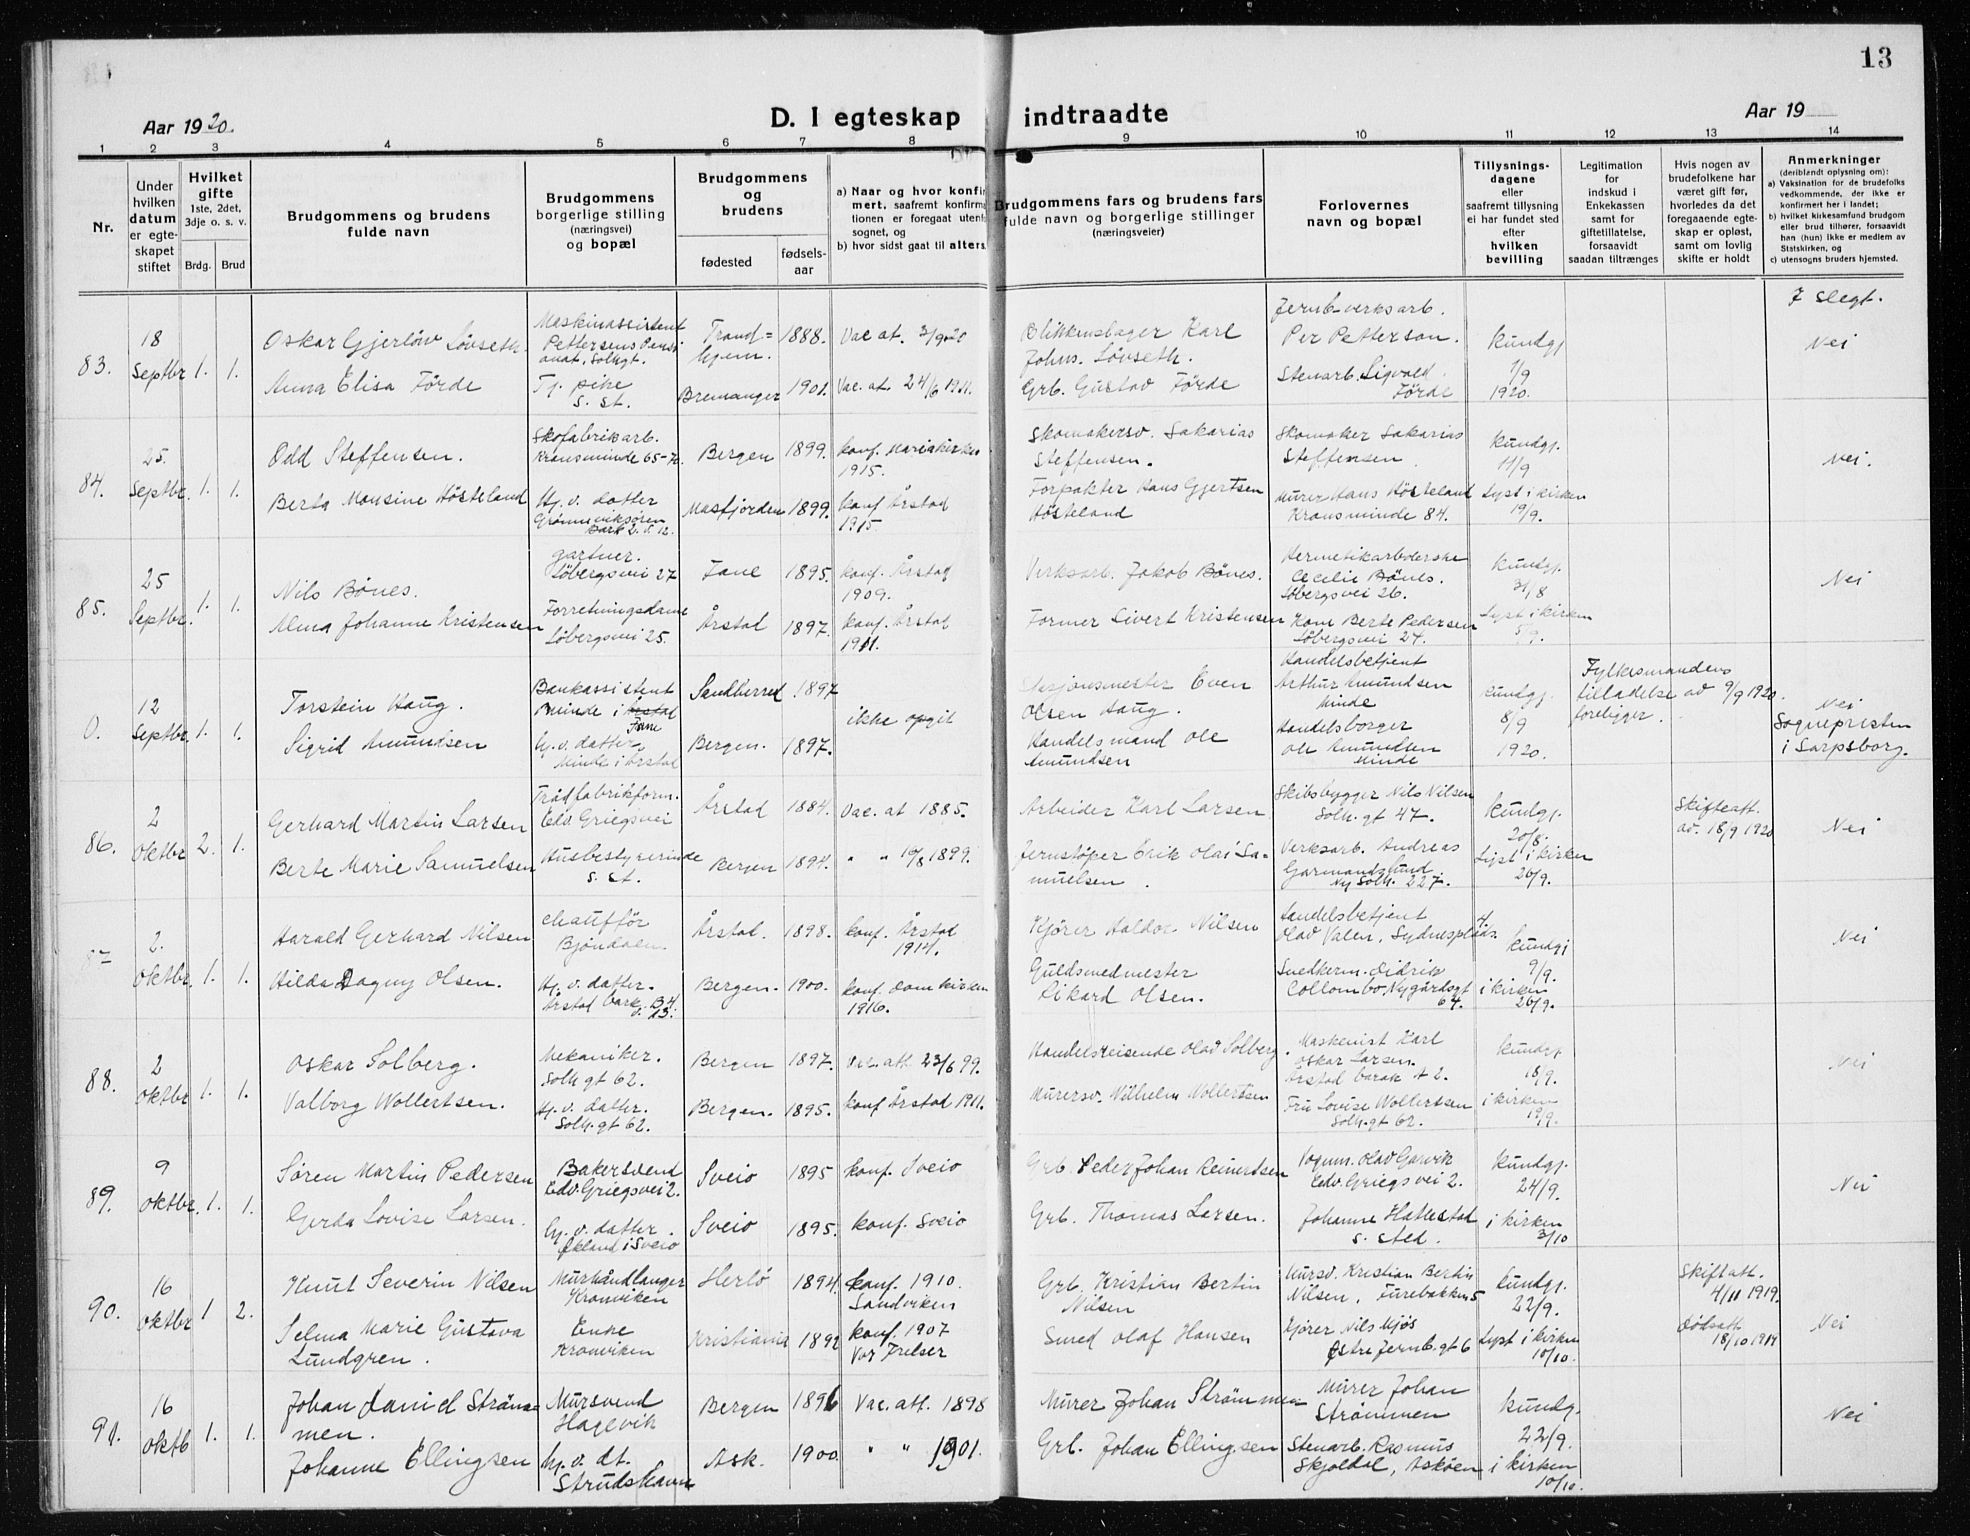 13
Aar 1920.
D. I egteskap indtraadte
Aar 19
1 2 3 4 5 6 7 8 9 10 11 12 13 14
Nr.
Under
hvilken
datum
er egte-
skapet
stiftet
Hvilket
gifte
1ste, 2det,
3dje o. s. v.
Brdg. Brud
Brudgommens og brudens
fulde navn
Brudgommens
borgerlige stilling
(næringsvei)
og bopæl
Brudgommens
og
brudens
fødested
fødsels-
aar
a) Naar og hvor konfir
mert, saafremt konfirma
tionen er foregaat utenf
sognet, og
b) hvor sidst gaat til alters
Brudgommens fars og brudens fars
fulde navn og borgerlige stillinger
(næringsveier)
Forlovernes
navn og bopæl
Tillysnings-
dagene
eller
saafremt tillysning
ei har fundet sted
efter
hvilken
bevilling
Legitimation
for
indskud i
Enkekassen
samt for
giftetillatelse,
forsaavidt
saadan tiltrænges
Hvis nogen av
brudefolkene har
været gift før,
hvorledes da det
foregaaende egte-
skap er opløst,
samt om lovlig
skifte er holdt
Anmerkninger
(deriblandt oplysning om):
a) Vaksination for de brudefolks
vedkommende, der ikke er
konfirmert her i landet;
b) hvilket kirkesamfund brudgom
eller brud tilhører, forsaavidt
han (hun) ikke er medlem av
Statskirken, og
c) utensogns bruders hjemsted.
83.
18
Septbr 1. 1.
Oskar Gjerløw Løvseth.
Maskinassistent
Pettersens Pensi
onat, Solhgt.
Trond=
hjem.
1888.
Vac at. 3/9 20
Blikkenslager Karl
Johns. Løvseth.
Jernb-verksarb.
Per Petterson.
kundgj
7/9
1920.
7 slegt.
Nei
Anna Elisa Förde
Tj. pike
s. st.
Bremanger 1901. Vac. at. 24/6 1911.
Grb. Gustav Förde
Stenarb. Sigvald
Förde
84.
25.
Septbr. 1. 1.
Odd Steffensen.
Skofabrikarb.
Kransminde 65-72.
Bergen 1899.
konf. Mariakirken
1915.
Skomakersv. Sakarias
Steffensen.
Skomaker Sakarias
Steffensen
kundgj.
11/9
Nei.
Berta Monsine Hösteland
Hj. v. datter
Grønneviksøren
Bark 2. v. 12.
Masfjorden 1899.
konf Årstad
1915
Forpakter Hans Gjertsen
Hösteland
Murer Hans Hösteland
Kransminde 84.
Lyst i kirken
19/9.
85.
25
Septbr. 1. 1.
Nils Bönes.
Gartner.
Löbergsvei 27
Fane 1895.
konf. Årstad
1909.
Verksarb. Jakob Bönes.
Hermetikarbeiderske
Cecilie Bönes.
Löbergsvei 26.
kundgj.
31/8
Nei
Alma Johanne Kristensen
Forretningsdame
Löbergsvei 25.
Årstad 1897.
konf. Årstad
1911.
Former Sivert Kristensen
Kone Berte Pedersen
Löbergsvei 24.
Lyst i kirken
5/9.
0.
12
Septbr. 1. 1.
Torstein Haug.
Bankassistent
Minde i Årstad
Fane
Sandherred 1897
ikke opgit
Stasjonsmester Even
Olsen Haug.
Handelsbetjent
Arthur Amundsen
Minde
kundgj.
8/9
1920.
Fylkesmandens
tilladelse av 9/9 1920
foreligger.
Nei
Sognepresten
i Sarpsborg.
Sigrid Amundsen
hj. v. datter
Minde i Årstad
Bergen. 1897.
Handelsmand Ole
Amundsen
Handelsborger
Ole Amundsen
Minde
86.
2
Oktbr 2. 1.
Gerhard Martin Larsen
Trådfabrikform.
Edv. Griegsvei
Årstad 1884. Vac. at 1885.
Arbeider Karl Larsen
Skibsbygger Nils Nilsen
Solh. gt 47.
kundgj.
20/8.
Skifteatt.
av. 18/9 1920
Nei
Berte Marie Samuelsen
Husbestyrerinde
s. st.
Bergen 1894. " " 10/8 1899.
Jernstöper Erik Olai Sa-
muelsen.
Verksarb. Andreas
Garmandslund
Ny Solh. 227.
Lyst i kirken
26/9.
2.
Oktbr. 1. 1.
Harald Gerhard Nilsen
Chaufför
Bjöndalen.
Årstad. 1898.
konf. Årstad
1914.
Kjörer Haldor Nilsen
Handelsbetjent
Olav Valen, Sydnesplads. 4.
kundgj
9/9.
Nei
Hilda Dagny Olsen.
Hj. v. datter.
Årstad bark. B4
v. 13.
Bergen. 1900.
konf. Domkirken
1916.
Guldsmedmester
Rikard Olsen.
Snedkerm. Didrik
Collombo, Nygårdsgt
64.
i kirken
26/9.
88.
2
Oktbr 1. 1.
Oskar Solberg.
Mekaniker.
Solh gt 62.
Bergen 1897. Vac. att 23/6 99.
Handelsreisende Olav Solberg.
Maskenist Karl
Oskar Larsen.
Årstad barak 4 2.
kundgj
18/9.
Nei
Valborg Wollertsen.
Hj. v. datter.
Solh. gt 62.
Bergen. 1895. konf Årstad 1911.
Murersv. Wilhelm Wollertsen
Fru Lovise Wollertsen
Solh. gt 62.
i kirken
19/9.
89.
9
Oktbr. 1. 1.
Sören Martin Pedersen
Bakersvend
Edv. Griegsvei 2.
Sveio 1895 konf. Sveio
Grb. Peder Johan Reinertsen
Vognm. Olav Garvik
Edv. Griegsvei 2.
kundgj.
24/9.
Nei
Gerda Lovise Larsen.
hj. v. datter.
Økland i Sveio
Sveio 1895. konf. Sveio
Grb. Thomas Larsen.
Johanne Hattestad
s. sted.
i kirken
3/10
90.
16
Oktbr 1 2.
Knut Severin Nilsen
Murhåndlanger
Kronviken
Herlö 1894.
konf. 1910.
Sandviken
Grb. Kristian Bertin
Nilsen
Mursv. Kristian Bertin
Nilsen, Furebakken 5
kundgj.
22/9.
Skiftatt.
4/11 1919.
Nei
Selma Marie Gustava
Lundgren.
Enke
Kronviken
Kristiania 1892
konf. 1907
Vor Frelser
Smed Olaf Hansen
Kjörer Nils Mjös
Østre Jernb. gt 6
Lyst i kirken
10/10.
Dödsatt.
18/10 1914
91.
16
Oktb 1. 1.
Johan Daniel Ström=
men.
Mursvend
Hagevik
Bergen 1896 Vac. att. 1898
Murer Johan Strømmen
Murer Johan
Strømmen
kundg.
22/9.
Nei
Johanne Ellingsen
hj. v. dt.
Strudshavn
Ask. 1900 " " 1901.
Grb. Johan Ellingsen
Stenarb. Rasmus
Skjoldal, Asköen
i kirken
10/10.